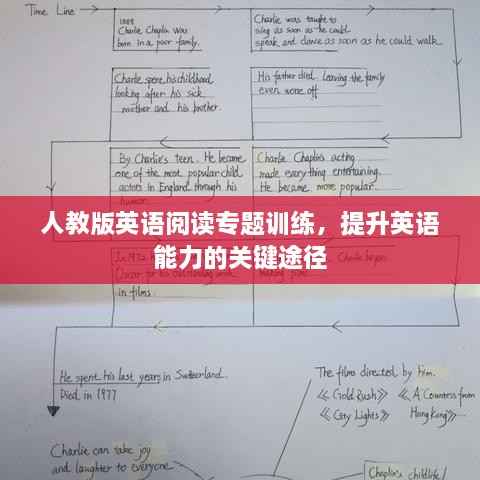 Time Line
1889
Charlie Chaplin was
born in a poor family.
Charlie was taught to
sing as soon as he could
speak and dance as soon as he could walk.
Charlie spene his childhood
looking after his sick
mother and his brother.
His father died. leaving the family
even worse off.
By Charlie's teen. He became
one of the most popular child
actors in England through his
humor
Charlie Chaplin's acting
made everything entertaining.
He became more popular.
人教版英语阅读专题训练，提升英语
能力的关键途径
In 1972
Oscar for his outstanding work
in films.
He spent his last years in Switzerland.
Died in 1977
The films directed by him.
《Gold Rush》
《A Countess from
《City Lights》
Hong Kong》
Charlie can take joy
and laughter to everyone
Chaplin's childlife/